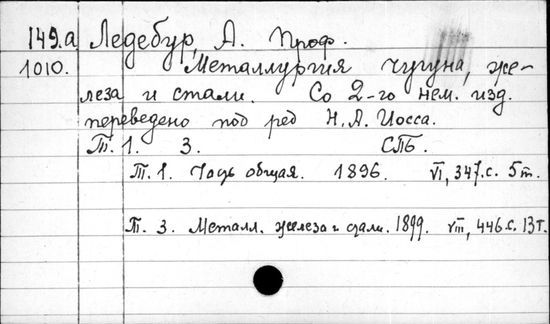 149.а Ледебур, А. Проф.
1010. Металлургия чугуна, же-
леза и стали. Со 2-го нем. изд.
переведено под ред Н.А. Иосса.
Т. 1. 3. СПБ.
Т. 1. Часть общая. 1896. VI, 347.с. 5т.
Т. 3. Металл. железа и стали. 1899. VIII, 446.с. 13т.